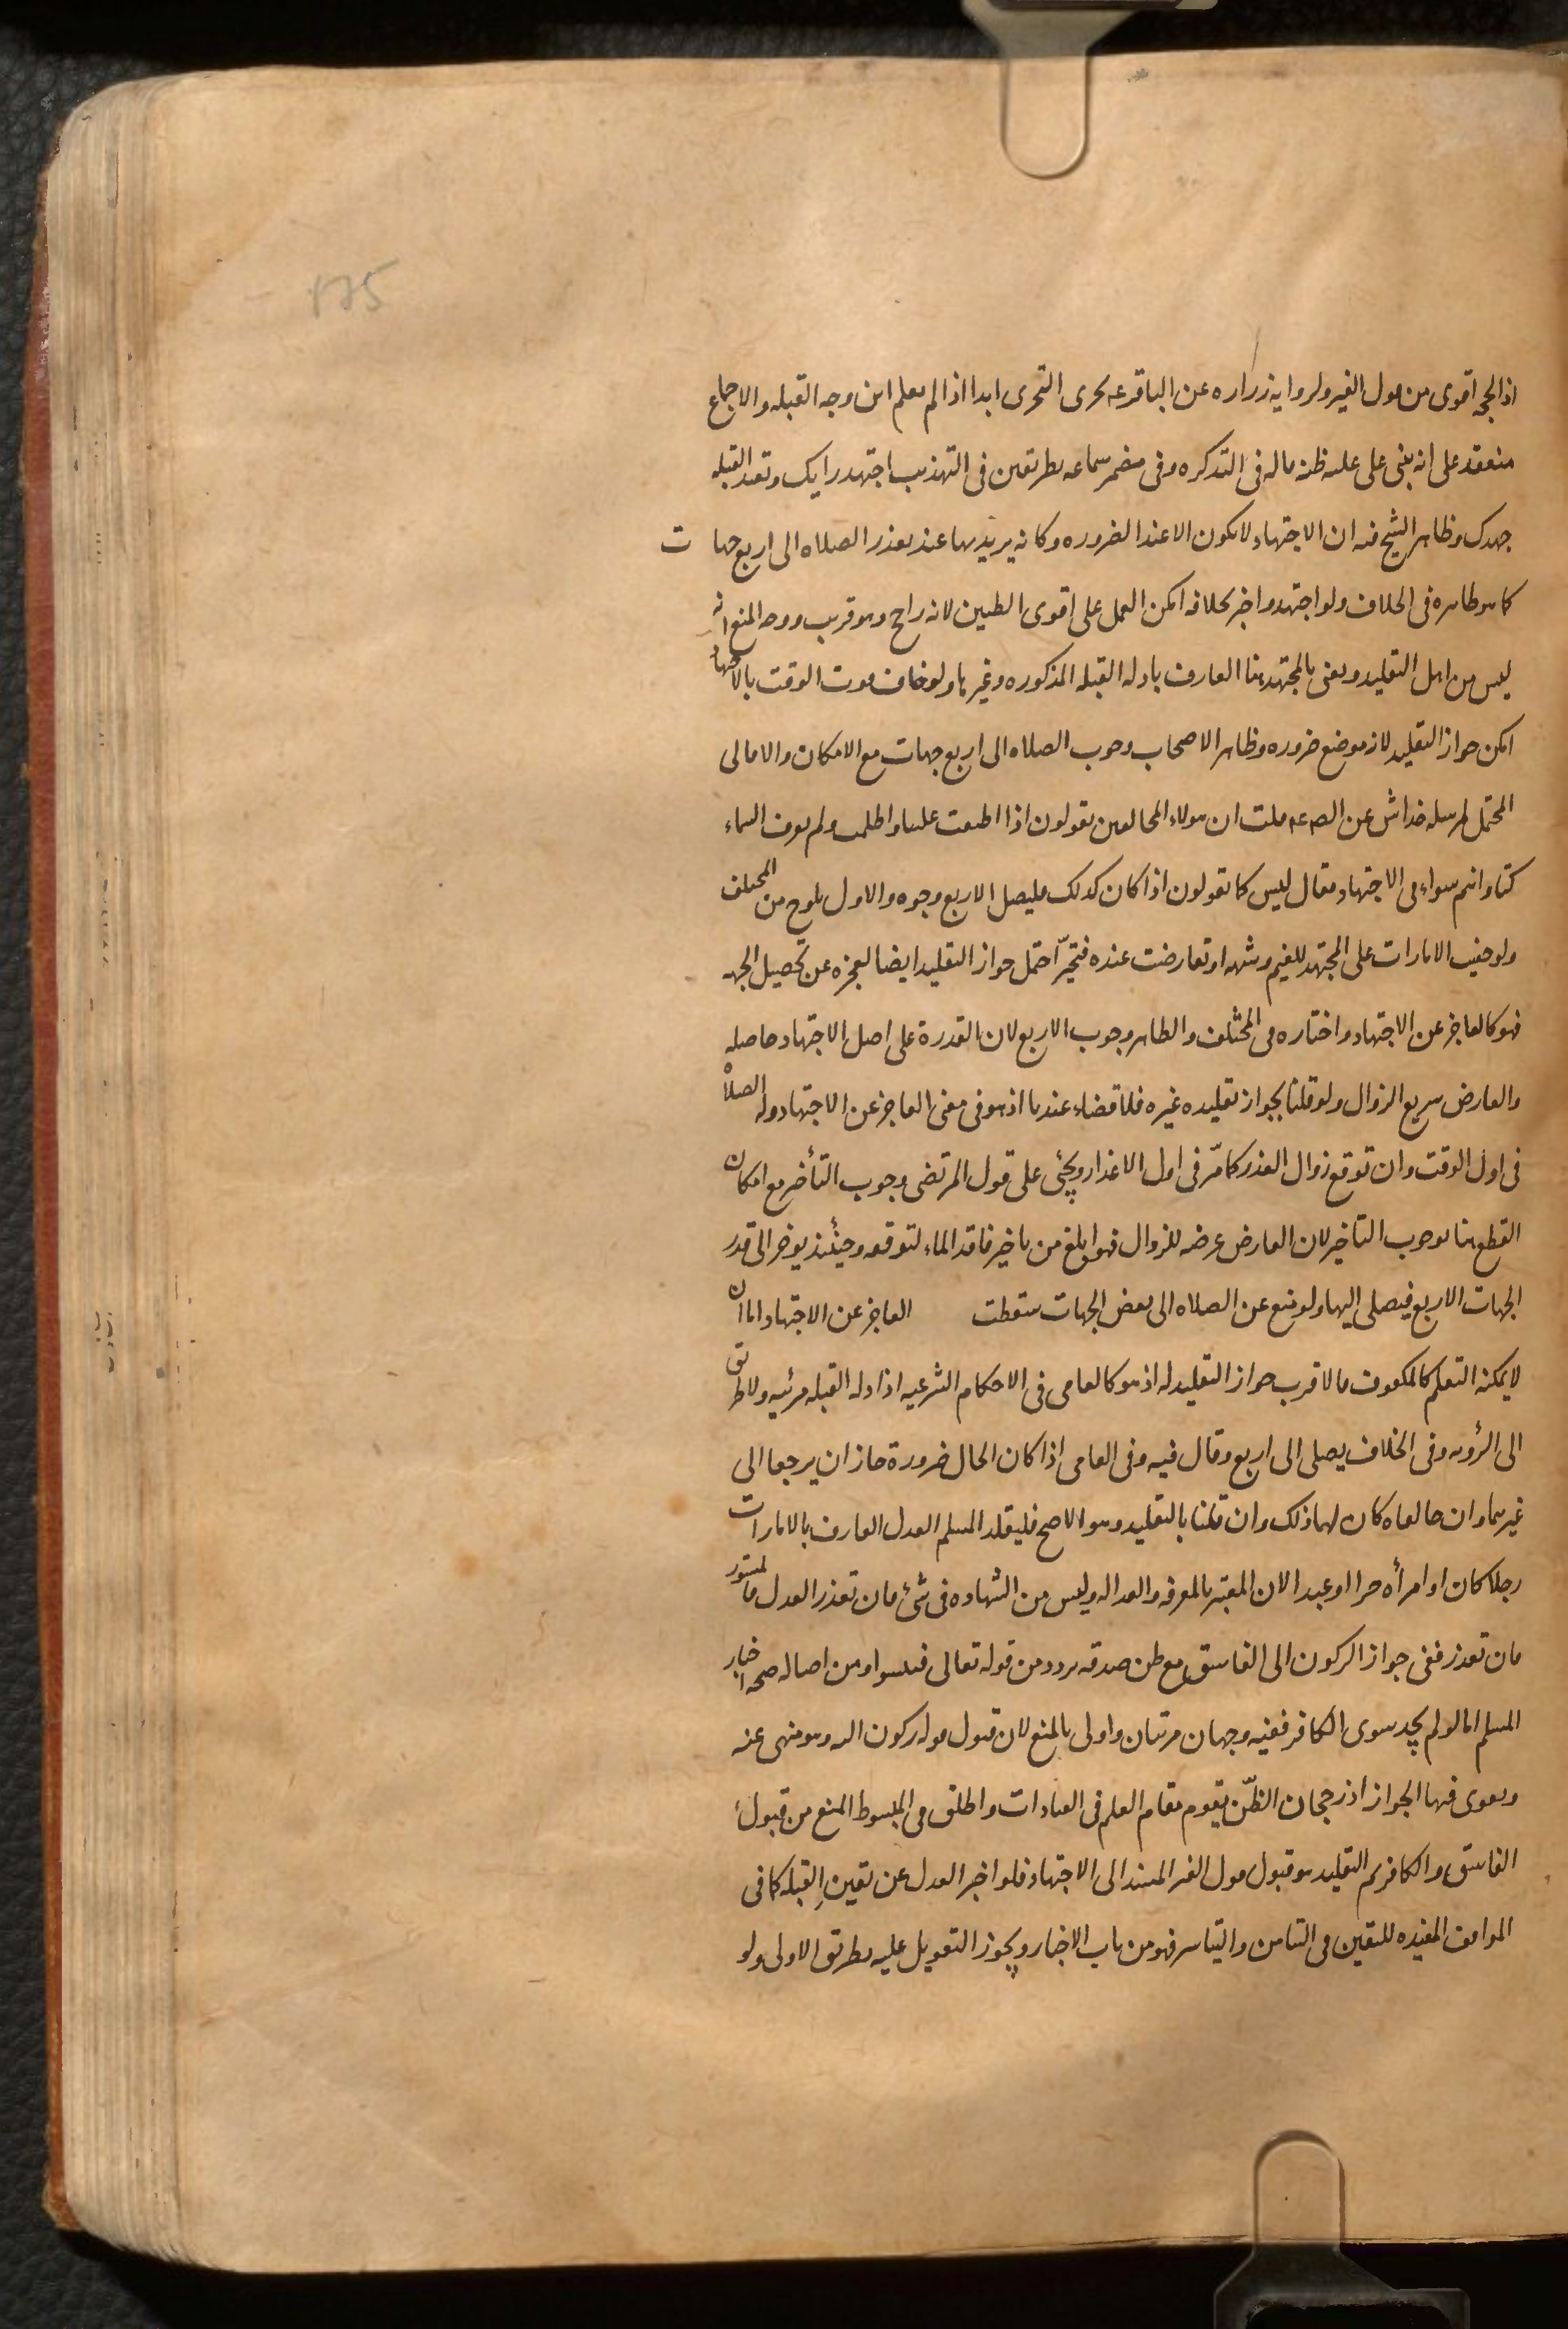 175
اذ الحجة اقوى من قول الغير ولرواية زرارة عن الباقر عه يجزى التحرى ابدا اذا لم يعلم اين وجه القبله والاجماع
منعقد على انه يبنى على غلبه ظنه قاله فى التذكره وفى مضمر سماعه بطريقين فى التهذيب اجتهد رايك وتعمد القبله
جهدك وظاهر الشيخ فيه ان الاجتهاد لا يكون الا عند الضروره وكانه يريد بها عند تعذر الصلاه الى اربع جهات
كما هو ظاهره فى الخلاف ولو اجتهد واخبر بخلافه امكن العمل على اقوى الظنين لانه راجح وهو قريب ووجه المنع انه
ليس من اهل التقليد ويعنى بالمجتهد هنا العارف بادله القبله المذكوره وغيرها ولو خاف فوت الوقت بالاجتهاد
امكن جواز التقليد لانه موضع ضروره وظاهر الاصحاب وجوب الصلاه الى اربع جهات مع الامكان والا فالى
المحتمل لمرسله خداش عن الص عه قلت ان هولاء المخالفين يقولون اذا اطبقت علينا واظلمت ولم نعرف السماء
كنا وانتم سواء فى الاجتهاد فقال ليس كما يقولون اذا كان كذلك فليصل لاربع وجوه والاول يلوح من المختلف
ولو خفيت الامارات على المجتهد للغيم وشبهه او تعارضت عنده فتحيّر احتمل جواز التقليد ايضا لعجزه عن تحصيل الجهه
فهو كالعاجز عن الاجتهاد واختاره فى المختلف والظاهر وجوب الاربع لان القدرة على اصل الاجتهاد حاصله
والعارض سريع الزوال ولو قلنا بجواز تقليده غيره فلا قضاء عندنا اذ هو فى معنى العاجز عن الاجتهاد وله الصلاة
فى اول الوقت وان توقع زوال العذر كما مرّ فى اول الاعذار ويجئى على قول المرتضى وجوب التأخير مع امكان
القطع هنا بوجوب التاخير لان العارض عرضه للزوال فهو ابلغ من تاخير فاقد الماء لتوقعه وحينئذ يوخر الى قدر
الجهات الاربع فيصلى اليها ولو منع عن الصلاه الى بعض الجهات سقطت العاجز عن الاجتهاد اما ان
لا يمكنه التعلم كالمكفوف فالاقرب جواز التقليد له اذ هو كالعامى فى الاحكام الشرعيه اذ ادله القبله مرئيه ولا طريق
الى الرؤيه وفى الخلاف يصلى الى اربع وقال فيه وفى العامى اذا كان الحال ضرورة جاز ان يرجعا الى
غيرهما وان خالفاه كان لهما ذلك وان قلنا بالتقليد وهو الاصح فليقلد المسلم العدل العارف بالامارات
رجلا كان او امرأه حرا او عبدا لان المعتبر بالمعرفه والعداله وليس من الشهاده فى شئ فان تعذر العدل فالمستور
فان تعذر ففى جواز الركون الى الفاسق مع ظن صدقه تردد من قوله تعالى فتبينوا ومن اصاله صحه اخبار
المسلم اما لو لم يجد سوى الكافر ففيه وجهان مرتبان واولى بالمنع لان قبول قوله ركون اليه وهو منهى عنه
ويقوى فيهما الجواز اذ رجحان الظنّ يقوم مقام العلم فى العبادات واطلق فى المبسوط المنع من قبول
الفاسق والكافر ثم التقليد هو قبول قول الغير المستند الى الاجتهاد فلو اخبر العدل عن تعين القبله كما فى
المواقف المفيده لليقين فى التيامن والتياسر فهو من باب الاخبار ويجوز التعويل عليه بطريق الاولى ولو